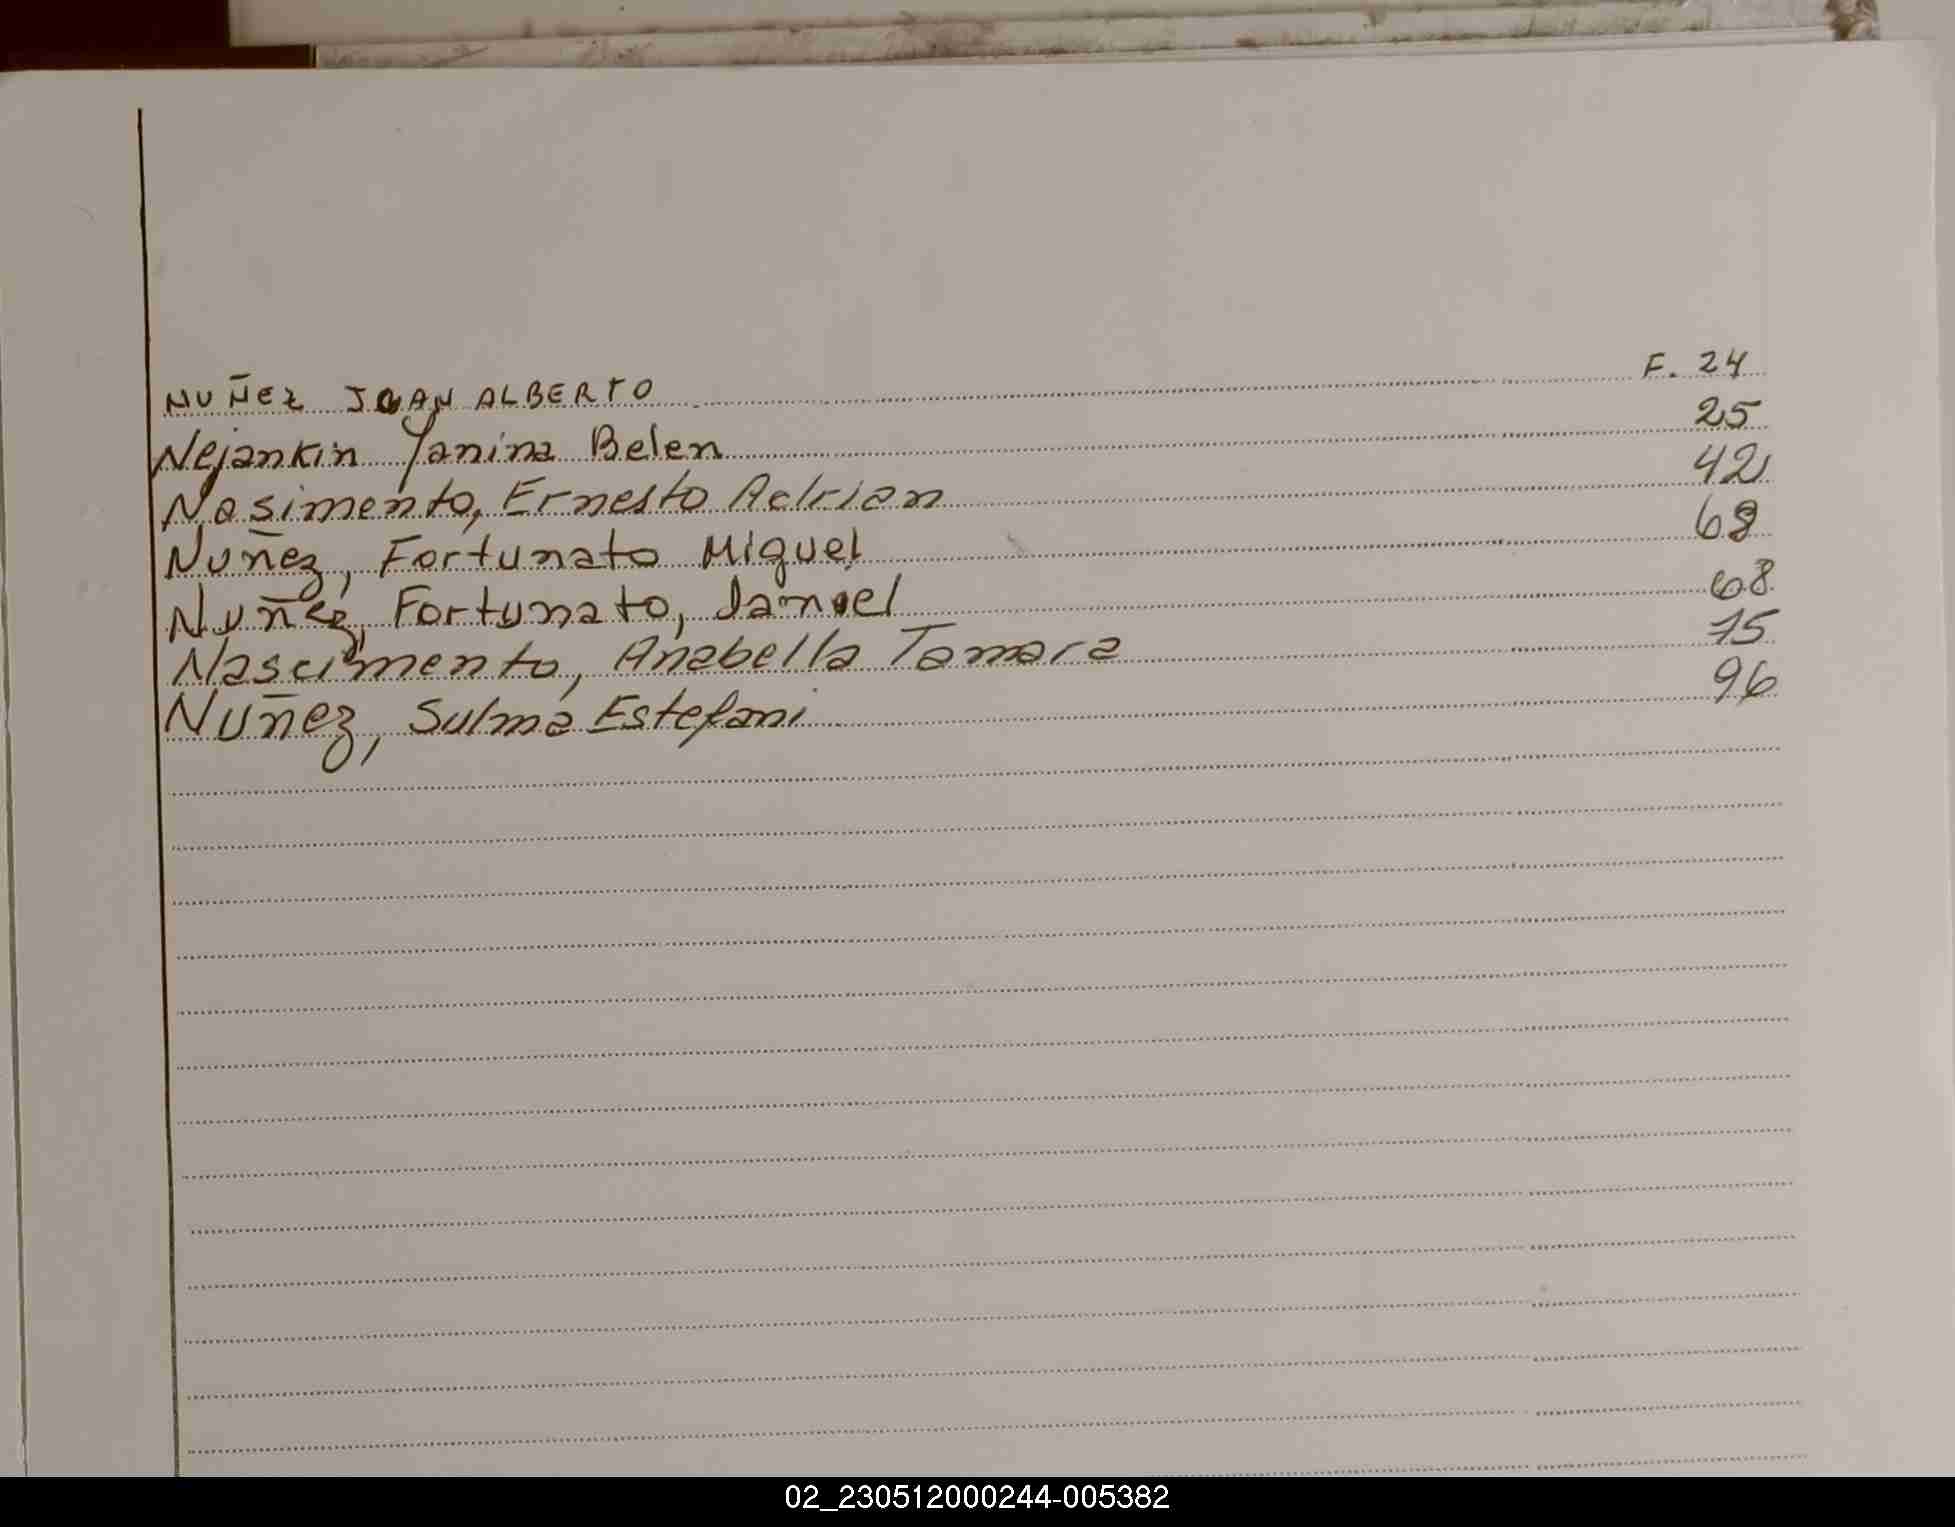 NUÑEZ JUAN ALBERTO F. 24
Nejankin Yanina Belen 25
Nasimento, Ernesto Adrian 42
Nuñez, Fortunato Miguel 68
Nuñez, Fortunato, Daniel 68
Nascimento, Anabella Tamara 75
Nuñez, Sulma Estefani 96
02_230512000244-005382